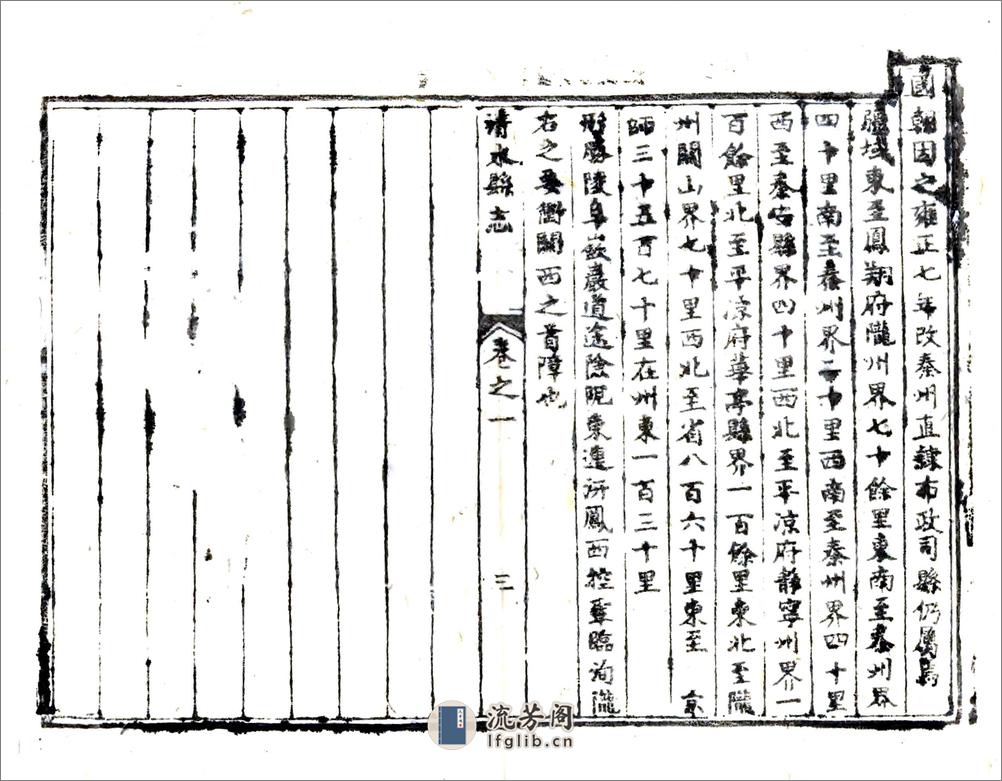 國朝因之雍正七年改秦州直隸布政司縣仍屬焉
疆域東至鳳翔府隴州界七十餘里東南至秦州界
四十里南至秦州界二十里西南至秦州界四十里
西至秦安縣界四十里西北至平凉府靜寧州界一
百餘里北至平凉府華亭縣界一百餘里東北至隴
州關山界七十里西北至省八百六十里東至 京
師三十五百七十里在州東一百三十里
形勝陵阜嵚巖道途險阨東連汧鳳西控鞏臨洵隴
右之要衝關西之首障也
清水縣志
卷之一
三
流芳阁
lfglib.cn